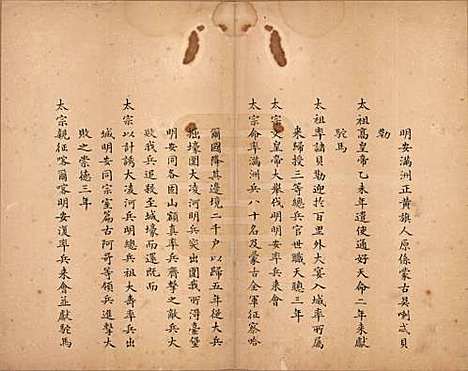 明安滿洲正黄旗人原係蒙古貝喇忒貝
勒
太祖高皇帝乙未年遣使通好天命二年來獻
駝馬
太祖率諸貝勒迎於百里外大宴入城率所屬
來歸授三等總兵官世職天聰三年
太宗文皇帝大舉伐明明安率兵來會
太宗命率滿洲兵八十名及蒙古全軍征察哈
爾國降其邊境二千户以歸五年從大兵
掘壕圍大凌河明兵突出圍我所得臺堡
明安同各固山額真率兵齊擊之敵兵大
敗我兵追殺至城壕而還既而
太宗以計誘大凌河兵明總兵祖大壽率兵出
城明安同宗室篇古阿哥等領兵進擊大
敗之崇德三年
太宗親征喀爾喀明安復率兵來會並獻駝馬